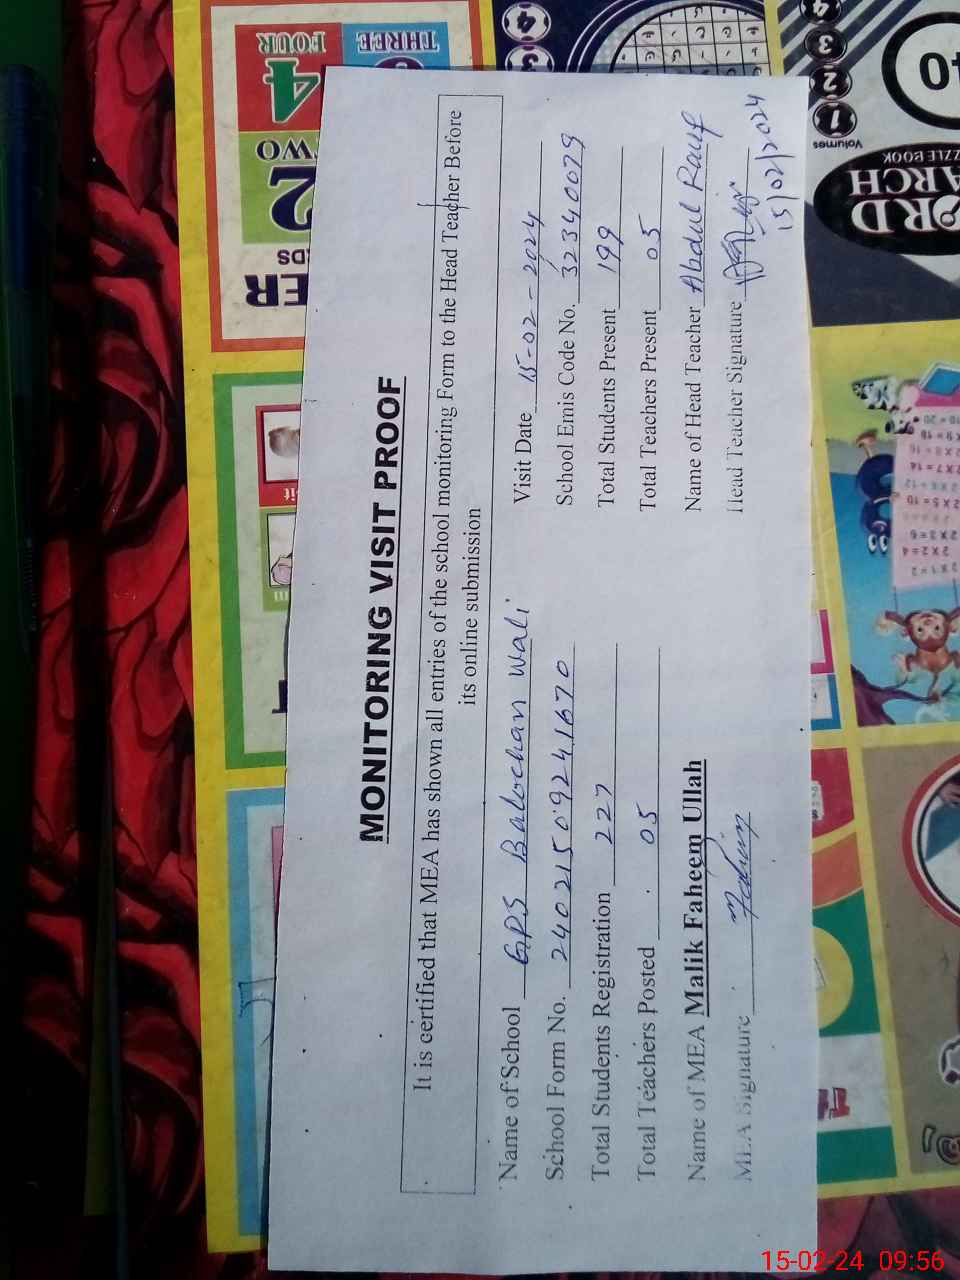 MONITORING VISIT PROOF
It is certified that MEA has shown all entries of the school monitoring Form to the Head Teacher Before
its online submission
Name of School G.P.S Balochan Wali Visit Date 15-02-2024
School Form No. 24021509241670 School Emis Code No. 32340079
Total Students Registration 227 Total Students Present 199
Total Teachers Posted 05 Total Teachers Present 05
Name of MEA Malik Faheem Ullah Name of Head Teacher Abdul Rauf
MEA Signature Fahim Head Teacher Signature
15/02/2024
THREE
FOUR
4
TWO
2
4
3
2
1
Volumes
40
ZZLE BOOK
ORD
ARCH
2 X 2 = 4
2 X 3 = 6
2 X 5 = 10
2 X 7 = 14
15-02-24 09:56